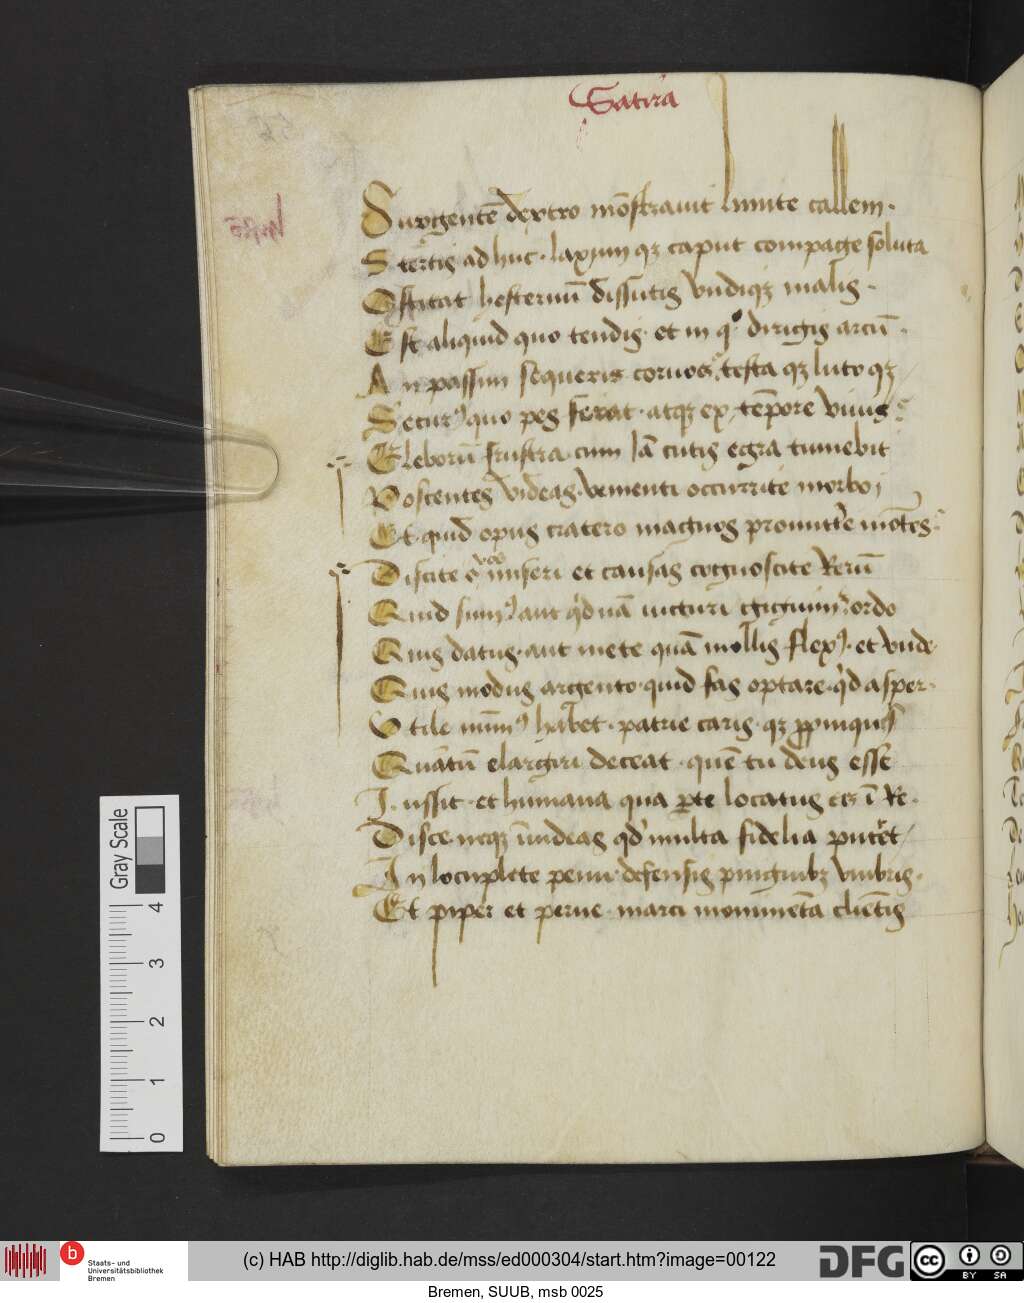 Satira
Surgentē dextro mōstrauit limite callem.
Stertis adhuc. laxum qꝫ caput compage soluta
Ostitat hesternū dissutis vndiqꝫ malis.
Est aliquid quo tendis. et in qͦ dirigis arcū.
An passim sequeris coruos testa qꝫ luto qꝫ
Securꝰ quo pes ferat. atqꝫ ex tēpore viuis
Eleborū frustra. cum iā cutis egra tumebit
Poscentes videas. venienti occurrite morbo
Et quid opus cratero magnos promittere mōtes
Discite o miseri et causas cognoscite Rerū
Quid sumꝰ aut qͥd nā uicturi gignimur ordo
Quis datus. aut mete quā mollis flexꝰ. et vnde
Quis modus argento. quid fas optare. qͥd asper.
Vtile nūmꝰ habet. patrie caris. qꝫ ꝓpinquis
Quātū elargiri deceat. quē tu deus esse
Iussit. et humana qua ꝑte locatus es ī Re.
Disce. neqꝫ īuideas qd' multa fidelia putet
In locuplete penu. defensis pinguibꝫ vmbris.
Et piper et perne. marci monimēta cliētis
Gray Scale
4
3
2
1
0
b
Staats- und
Universitätsbibliothek
Bremen
(c) HAB http://diglib.hab.de/mss/ed000304/start.htm?image=00122
DFG
cc BY SA
Bremen, SUUB, msb 0025